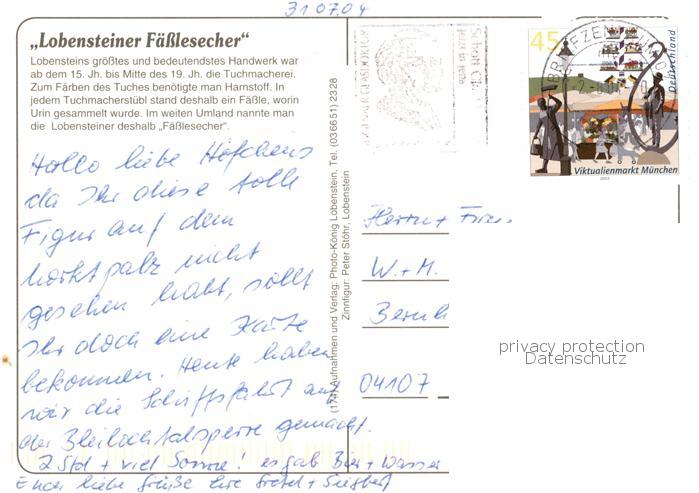 31.07.04
„Lobensteiner Fäßlesecher“
Lobensteins größtes und bedeutendstes Handwerk war
ab dem 15. Jh. bis Mitte des 19. Jh. die Tuchmacherei.
Zum Färben des Tuches benötigte man Harnstoff. In
jedem Tuchmacherstübl stand deshalb ein Fäßle, worin
Urin gesammelt wurde. Im weiten Umland nannte man
die Lobensteiner deshalb „Fäßlesecher“.
Hallo liebe Höfchens
da Ihr diese tolle
Figur auf dem
Marktpalz nicht
gesehen habt, sollt
Ihr doch eine Karte
bekommen. Heute haben
wir die Schiffsfahrt auf
der Bleilochtalsperre gemacht.
2 Std + viel Sonne! es gab Bier + Wasser
Euch liebe Grüße Eure + Siegbert
(174) Aufnahmen und Verlag: Photo-König Lobenstein, Tel. (036651) 2328
Zinnfigur: Peter Stöhr, Lobenstein
45
Deutschland
Viktualienmarkt München
2003
BRIEFZENTRUM
Herrn + Frau
W. + M.
Bernh
04107
privacy protection
Datenschutz